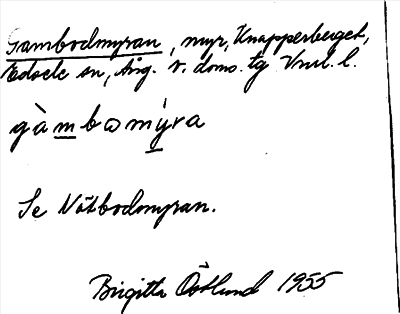 Gambodmyran, myr, Knapperberget,
Edsele sn, Ång. v. doms. tg Vnrl. l.
gàmbɷmýra
Se Nötbodmyran.
Birgitta Östlund 1955